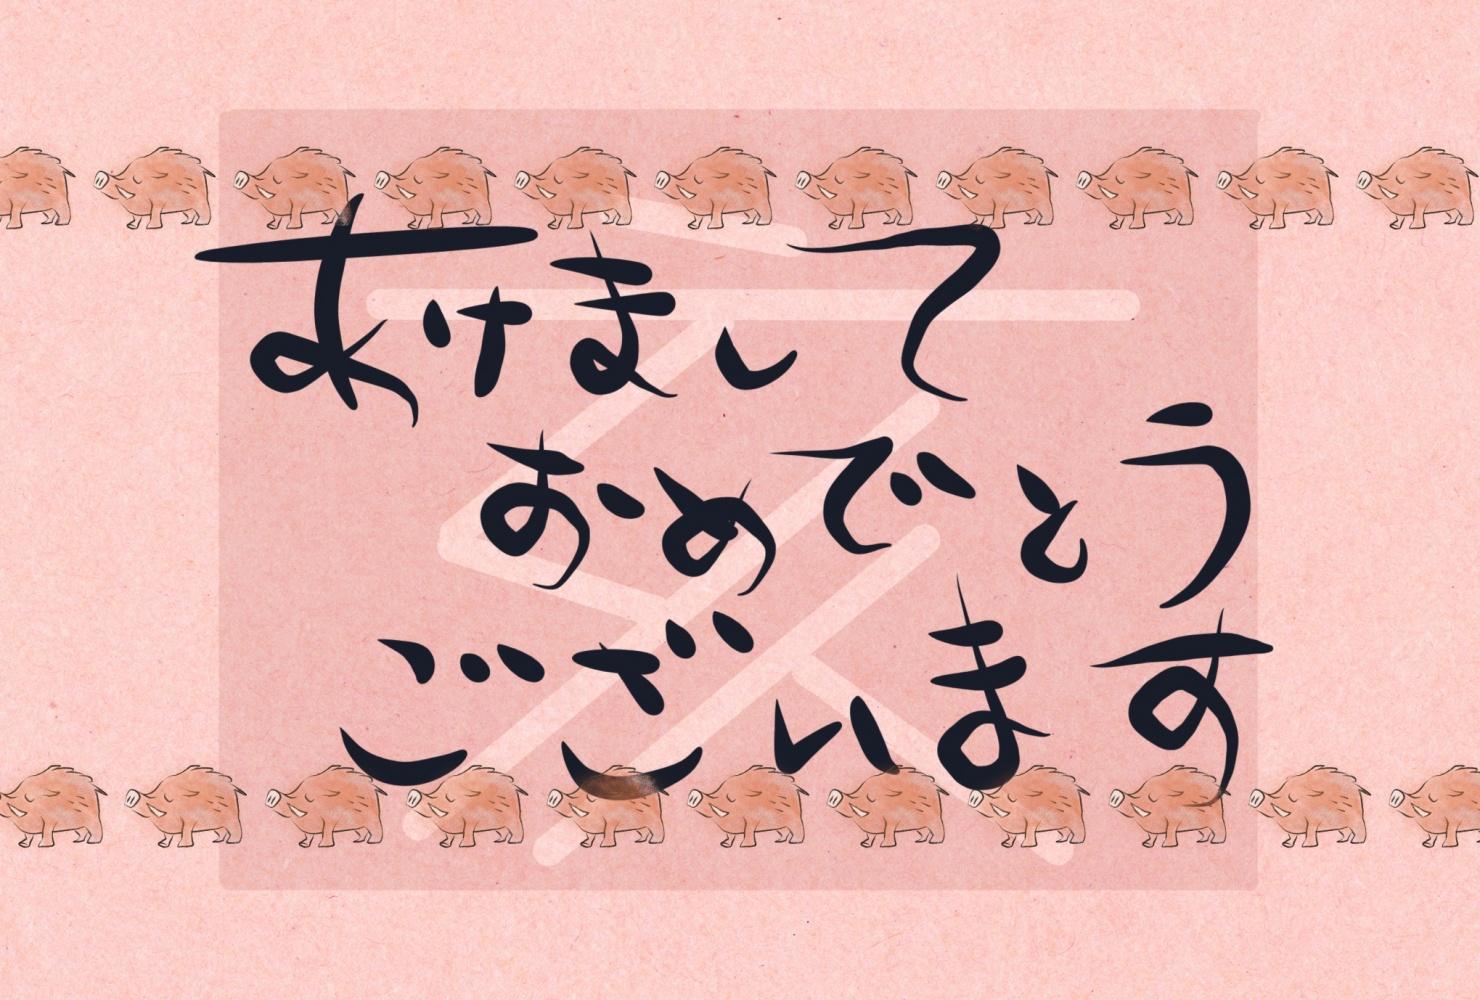 亥
あけまして
おめでとう
ございます